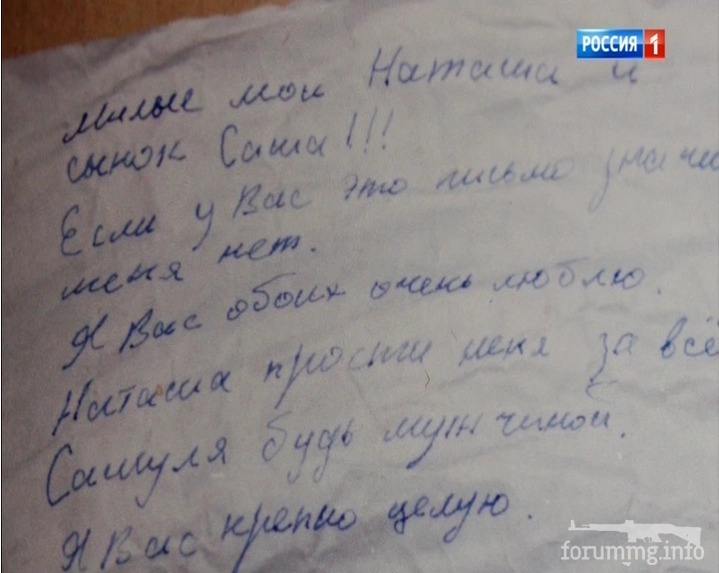 РОССИЯ 1
Милые мои Наташа и
сынок Саша!!!
Если у Вас это письмо значи
меня нет.
Я Вас обоих очень люблю.
Наташа прости меня за всё
Сашуля будь мужчиной.
Я Вас крепко целую.
forummg.info